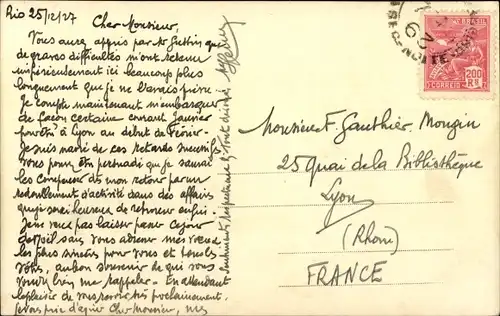 Rio 25/12/27
Cher Monsieur,
Vous aurez appris par Mr que
de graves difficultés m'ont retenu
impérieusement ici beaucoup plus
longuement que je ne l'avais pensé
Je compte maintenant m'embarquer
de façon certaine courant Janvier
pour être à Lyon au début de Février.
Je suis navré de ces retards
vous pouvez être persuadé que je saurai
les compenser dès mon retour par un
redoublement d'activité dans des affaires
que je serai heureux de retrouver enfin.
Je ne veux pas laisser passer ce jour
de Noël sans vous adresser mes vœux
les plus sincères pour vous et tous les
vôtres, au bon souvenir de qui vous
voudrez bien me rappeler. En attendant
le plaisir de vous revoir très prochainement
je vous prie d'agréer Cher Monsieur, mes
sentiments respectueux & tout dévoués
BRASIL
200
RS
CORREIO
Monsieur F. Gauthier-Mougin
25 Quai de la Bibliothèque
Lyon
(Rhone)
FRANCE